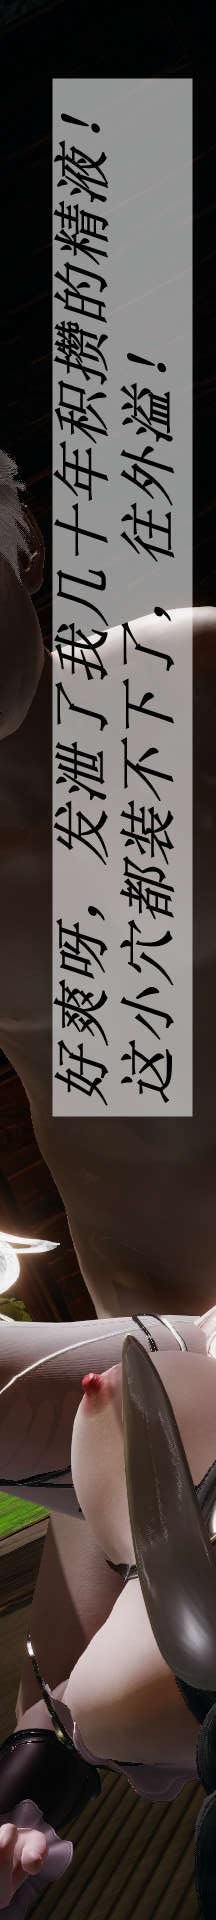 好爽呀，发泄了我几十年积攒的精液！
这小穴都装不下了，往外溢！